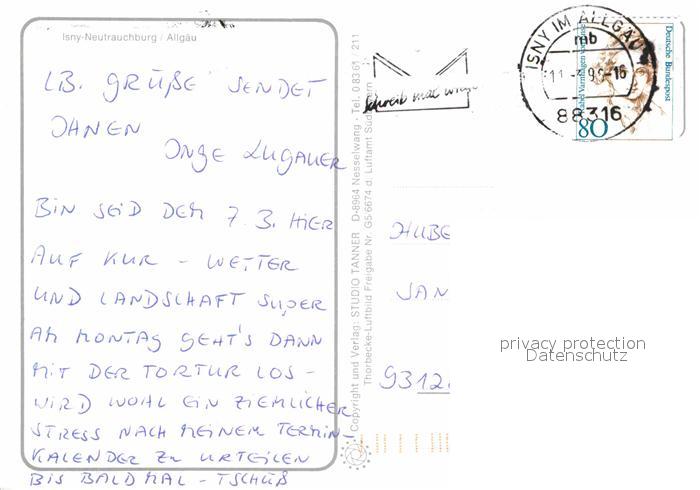 Isny-Neutrauchburg / Allgäu
LB. GRÜßE SENDET
IHNEN
INGE LUGAUER
BIN SEID DEM 7.3. HIER
AUF KUR - WETTER
UND LANDSCHAFT SUPER
AM MONTAG GEHT'S DANN
MIT DER TORTUR LOS -
WIRD WOHL EIN ZIEMLICHER
STRESS NACH MEINEM TERMIN-
KALENDER ZU URTEILEN
BIS BALD MAL - TSCHÜß
Copyright und Verlag: STUDIO TANNER D-8964 Nesselwang - Tel. 0 83 61 / 211
Thorbecke-Luftbild Freigabe Nr. G5/6674 d. Luftamt Süd
Schreib mal wieder
ISNY IM ALLGÄU
mb
88316
Deutsche Bundespost
80
HUBE
SAN
9312
privacy protection
Datenschutz